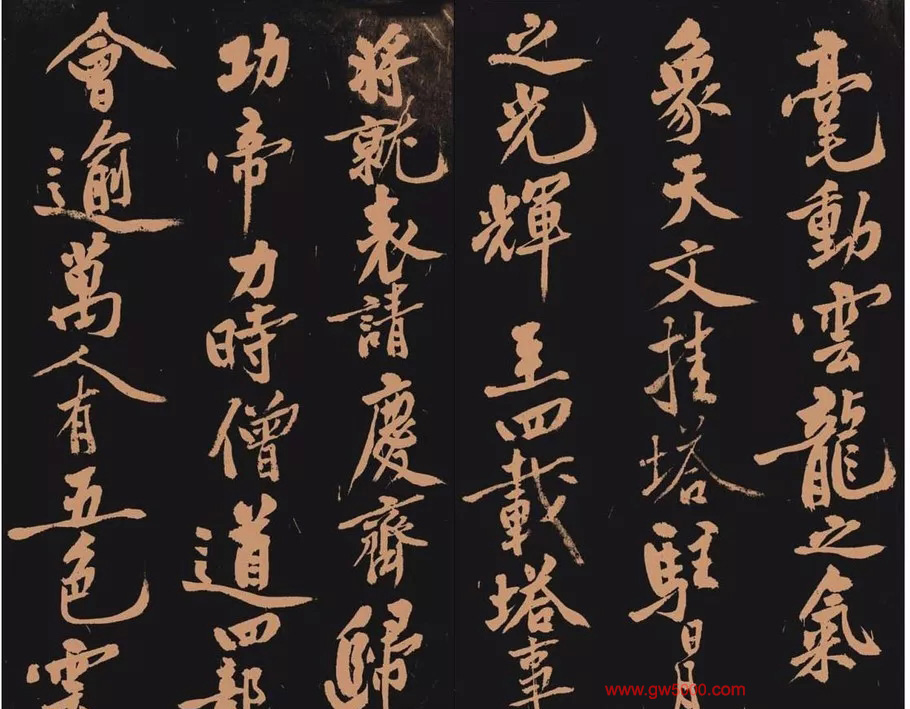 毫動雲龍之氣
象天文挂塔駐日月
之光輝至四載塔事
將就表請慶齋歸
功帝力時僧道四部
會逾萬人有五色雲
www.gw5000.com